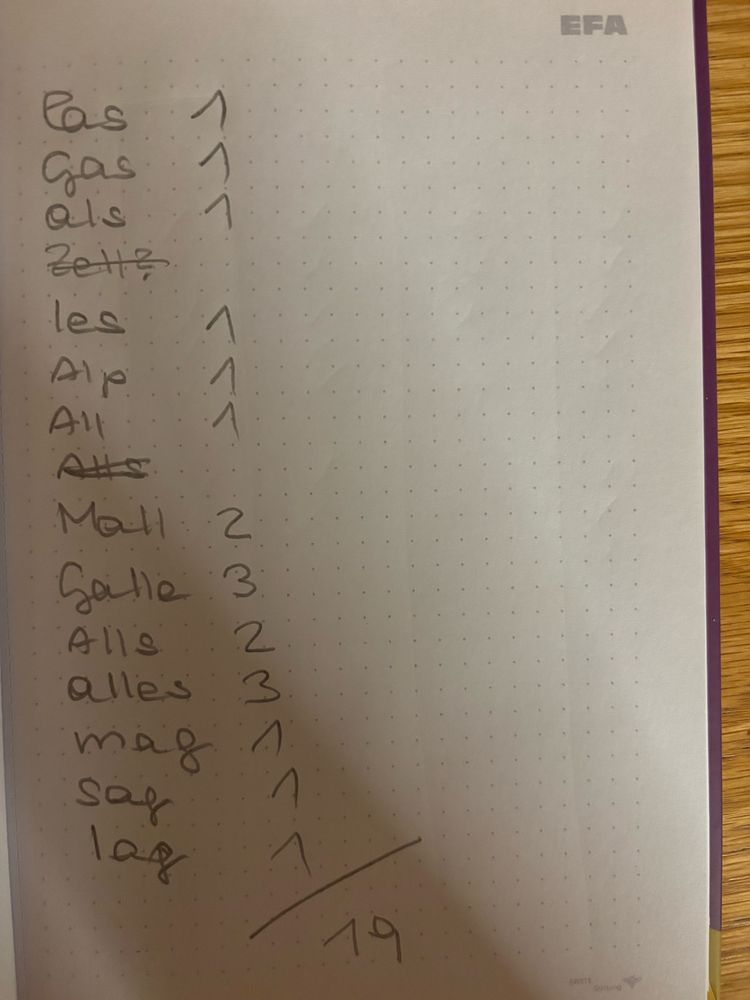 EFA
las 1
Gas 1
als 1
les 1
Alp 1
All 1
Mall 2
Galle 3
Alls 2
alles 3
mag 1
sag 1
lag 1
19